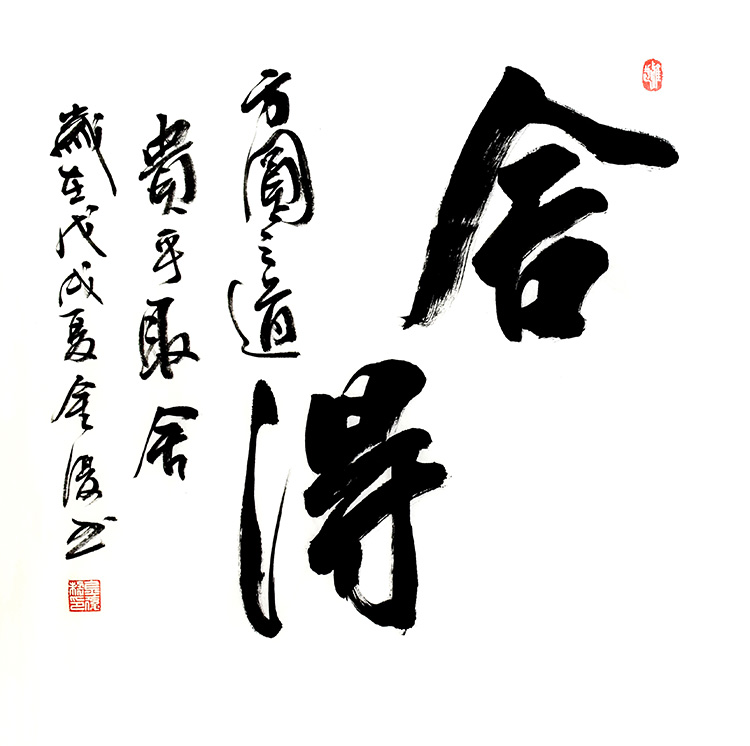 舍得
方圓之道
貴乎取舍
歲在戊戌夏金俊书